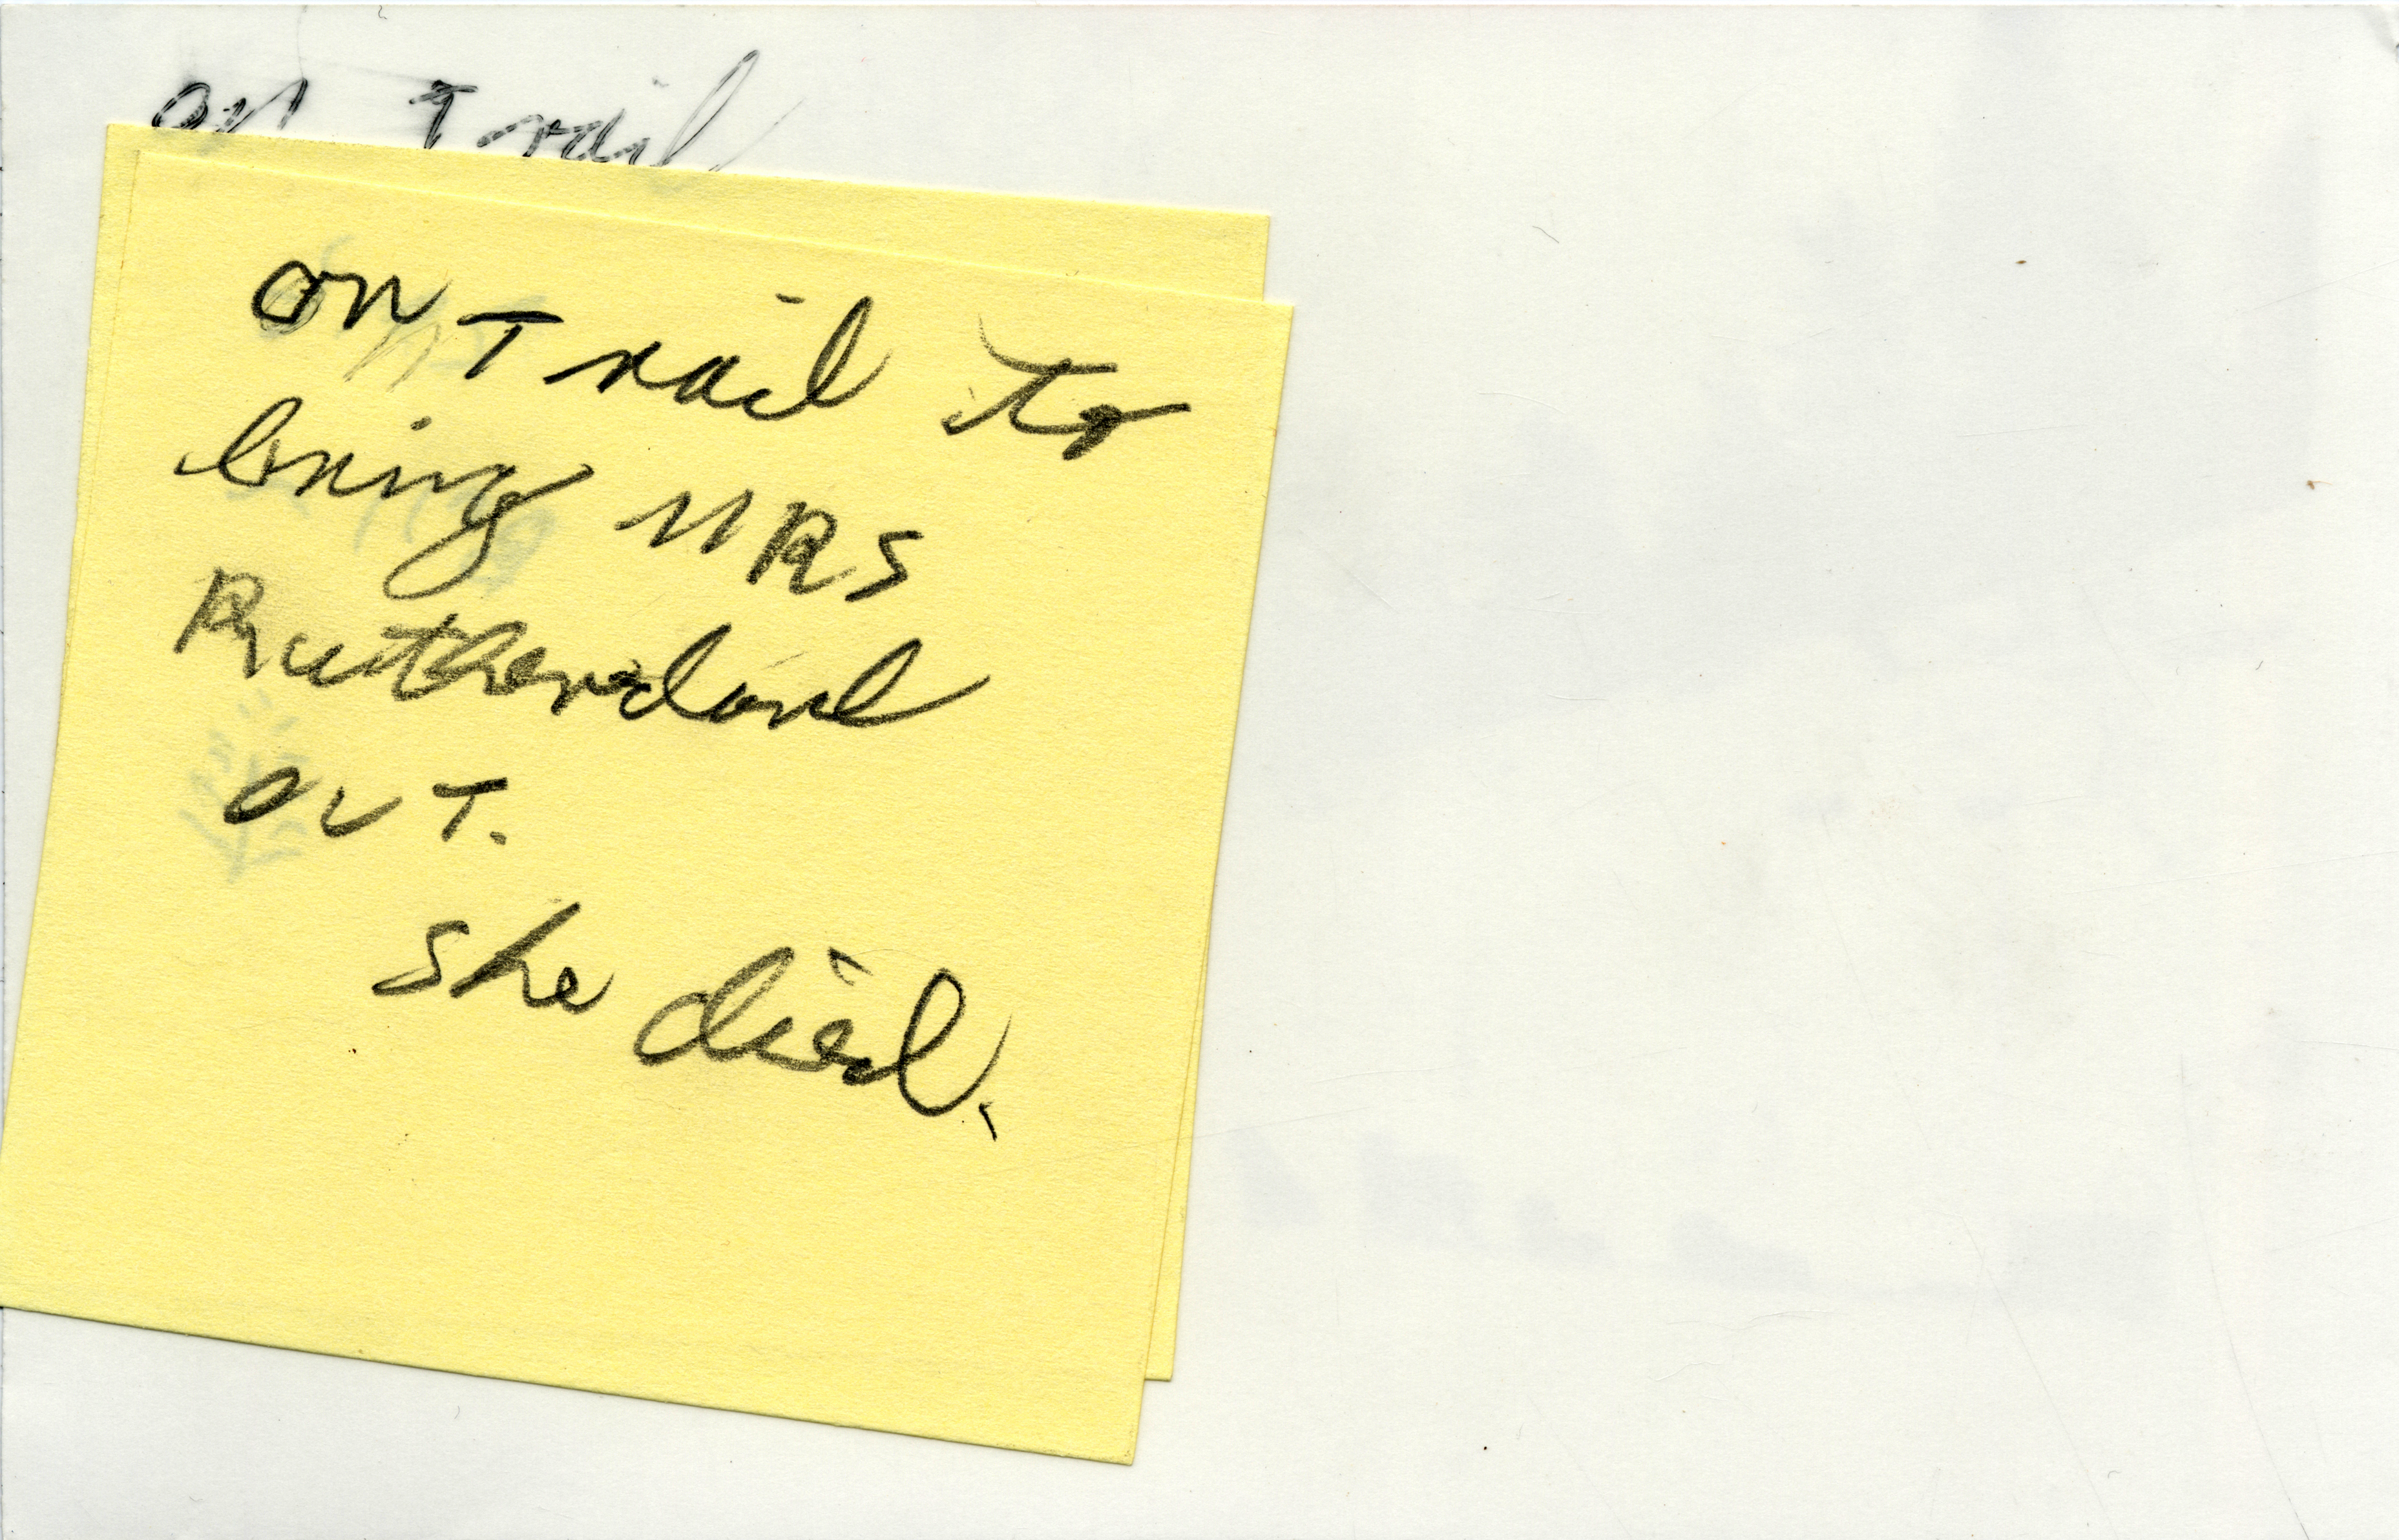 on Trail
on Trail to
bring MRS
Rutherdord
out.
she died.